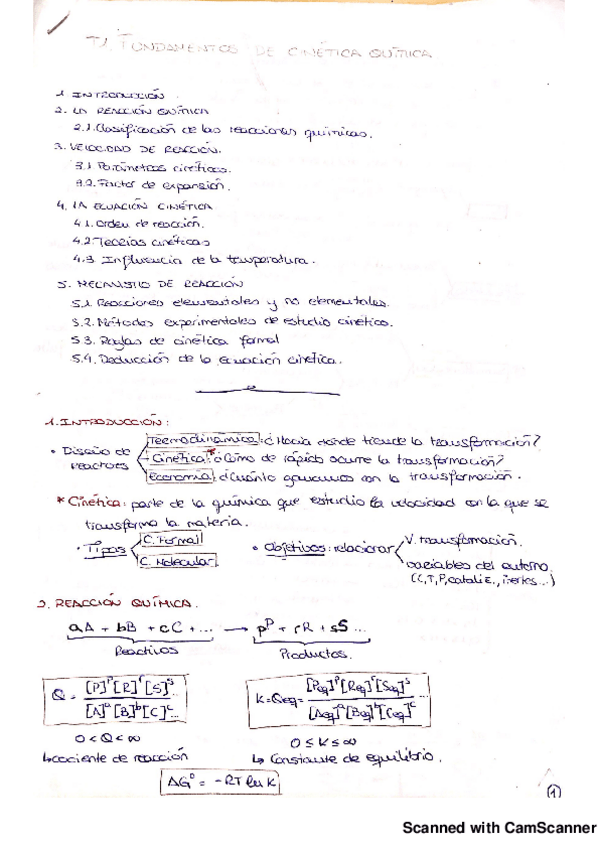 T1. FUNDAMENTOS DE CINÉTICA QUÍMICA
1. INTRODUCCIÓN
2. LA REACCIÓN QUÍMICA
2.1. Clasificación de las reacciones químicas.
3. VELOCIDAD DE REACCIÓN.
3.1 Parámetros cinéticos.
3.2. Factor de expansión.
4. LA ECUACIÓN CINÉTICA
4.1. Orden de reacción.
4.2. Teorías cinéticas
4.3 Influencia de la temperatura.
5. MECANISMO DE REACCIÓN
5.1. Reacciones elementales y no elementales.
5.2. Métodos experimentales de estudio cinético.
5.3. Reglas de cinética formal
5.4. Deducción de la ecuación cinética.
1. INTRODUCCIÓN:
• Diseño de reactores
Termodinámica: ¿Hacia dónde tiende la transformación?
Cinética*: ¿Cómo de rápido ocurre la transformación?
Economía: ¿Cuánto ganamos con la transformación.
* Cinética: parte de la química que estudia la velocidad con la que se
transforma la materia.
• Tipos
C. Formal
C. Molecular
• Objetivos: relacionar
V. transformación.
variables del entorno.
(C,T,P,cataliz., inertes...)
2. REACCIÓN QUÍMICA.
aA + bB + cC + ... → pP + rR + sS ...
Reactivos Productos.
Q = [P]^p [R]^r [S]^s ... / [A]^a [B]^b [C]^c ...
K = Qeq = [Peq]^p [Req]^r [Seq]^s ... / [Aeq]^a [Beq]^b [Ceq]^c ...
0 < Q < ∞ 0 ≤ K ≤ ∞
↳ cociente de reacción ↳ Constante de equilibrio.
ΔG° = -RT ln K
1
Scanned with CamScanner